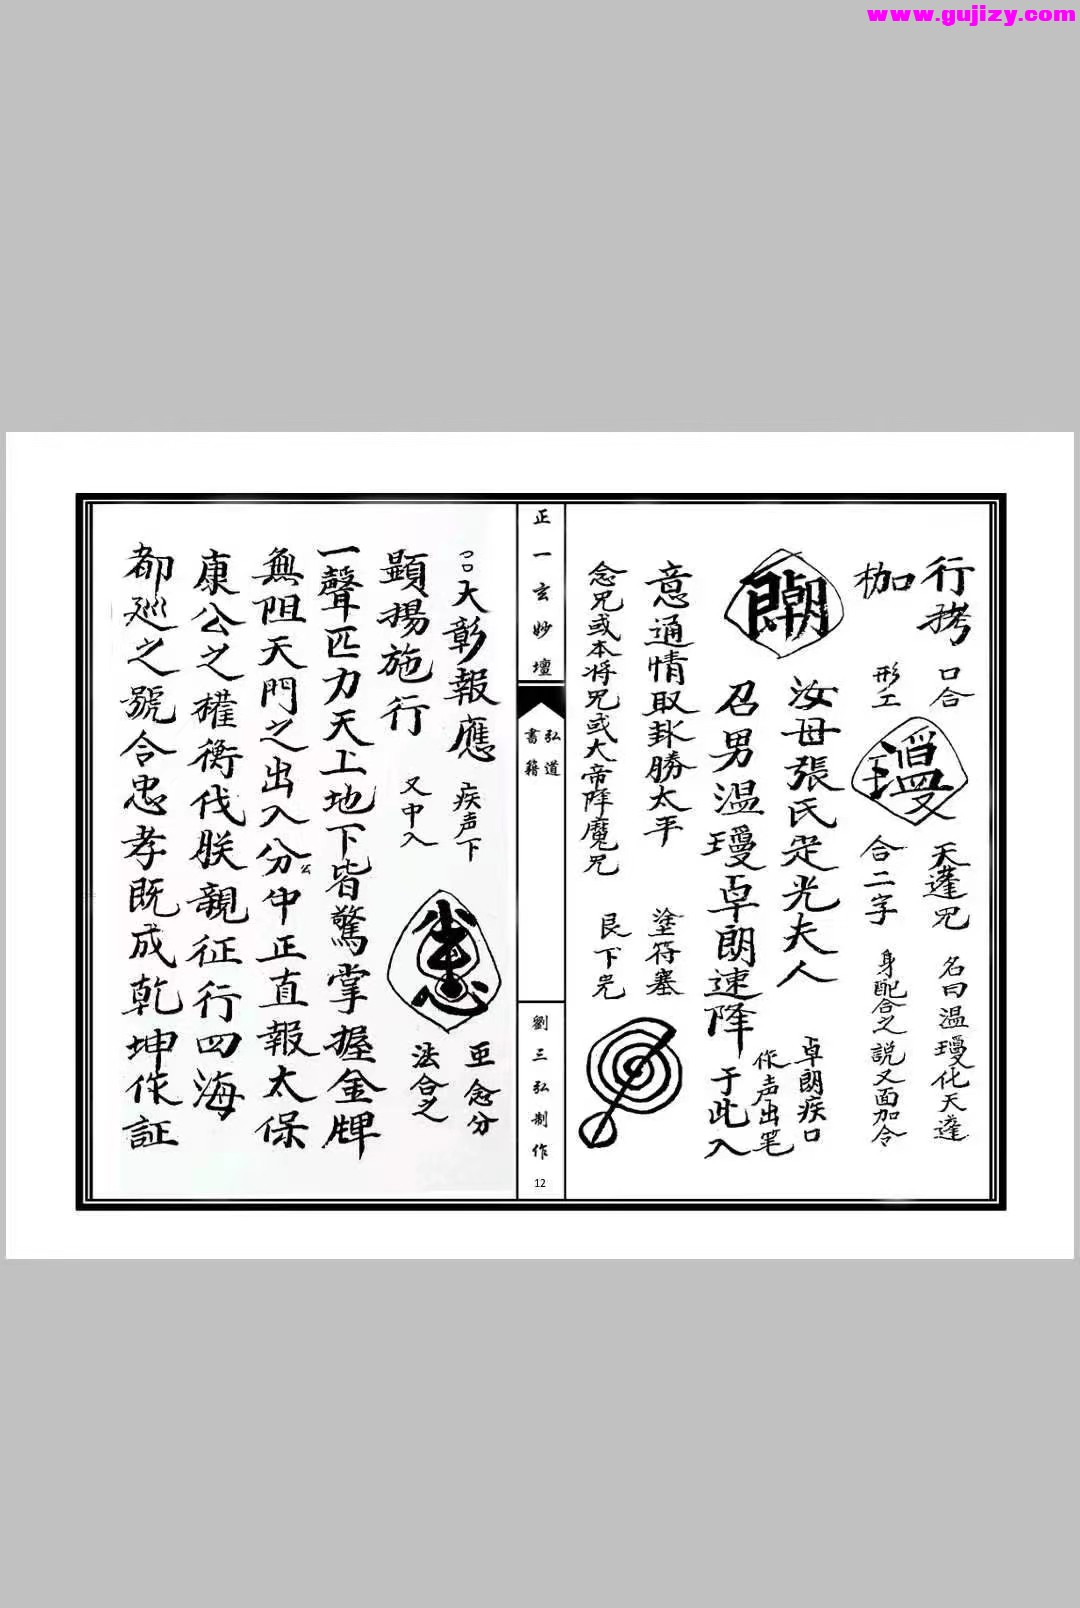 www.gujizy.com
行拷
枷
口合
形工
天蓬咒
合二字
名曰溫瓊化天蓬
身配合之說又面加令
汝母張氏是光夫人
召男溫瓊卓朗速降
卓朗疾口
作声出笔
于此入
意通情取卦勝太平
塗符塞
念咒或本将咒或大帝降魔咒
艮下
正一玄妙壇
弘道
書籍
劉三弘制作
12
大彰報應
疾声下
顕揚施行
又中入
亚念分
法合之
一聲匹力天上地下皆驚掌握金牌
無阻天門之出入分中正直報太保
公
康公之權衡伐朕親征行四海
都巡之號合忠孝既成乾坤作証